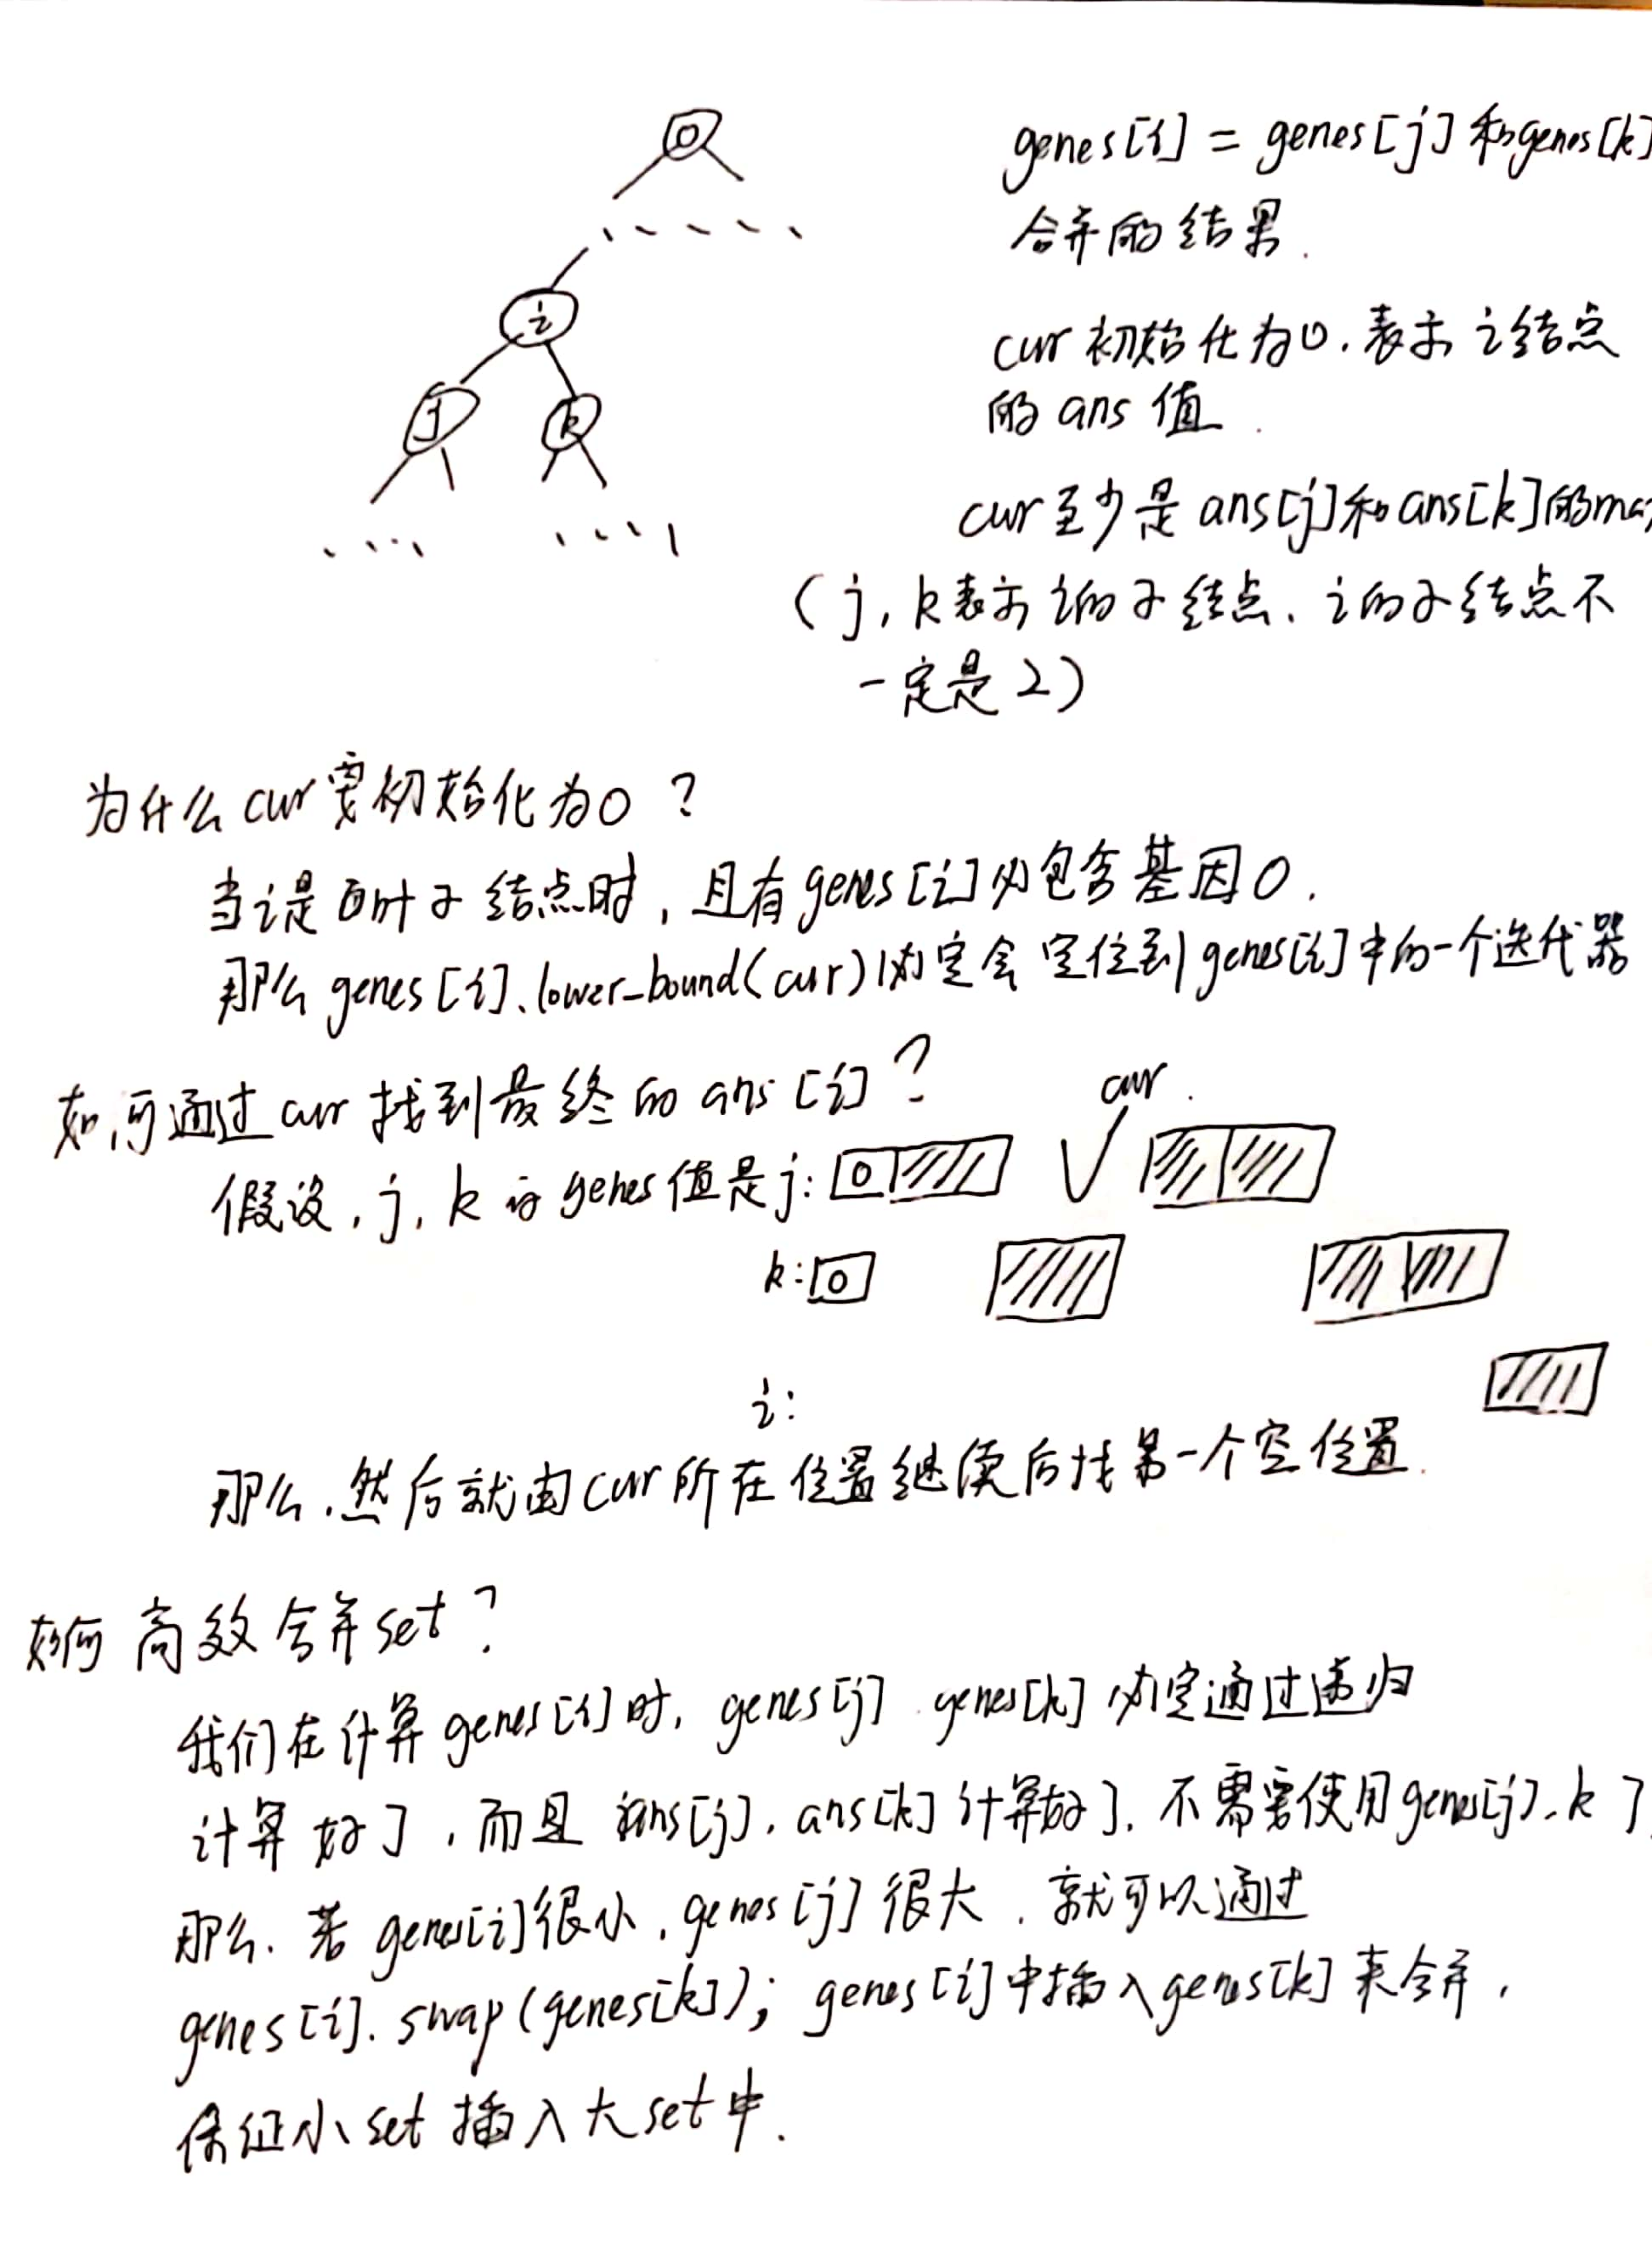 0
genes[i] = genes[j] 和genes[k]
合并的结果.
i
cur 初始化为0.表示 i结点
的 ans 值.
j
k
cur至少是 ans[j]和ans[k]的ma
(j, k表示i的子结点、i的子结点不
一定是2)
为什么cur要初始化为0?
当i是叶子结点时,且有genes[i]必包含基因0.
那么genes[i].lower_bound(cur)必定会定位到genes[i]中的一个迭代器
如何通过cur找到最终的ans[i]?
cur.
假设,j,k的genes值是j: 0
k: 0
i:
那么,然后就由cur所在位置继续后找第一个空位置.
如何高效合并set?
我们在计算genes[i]时, genes[j].genes[k]必定通过递归
计算好了,而且ans[j],ans[k]计算好了.不需要使用genes[j].k了
那么.若genes[i]很小,genes[j]很大.就可以通过
genes[i].swap(genes[k]); genes[i]中插入genes[k]来合并,
保证小set插入大set中.